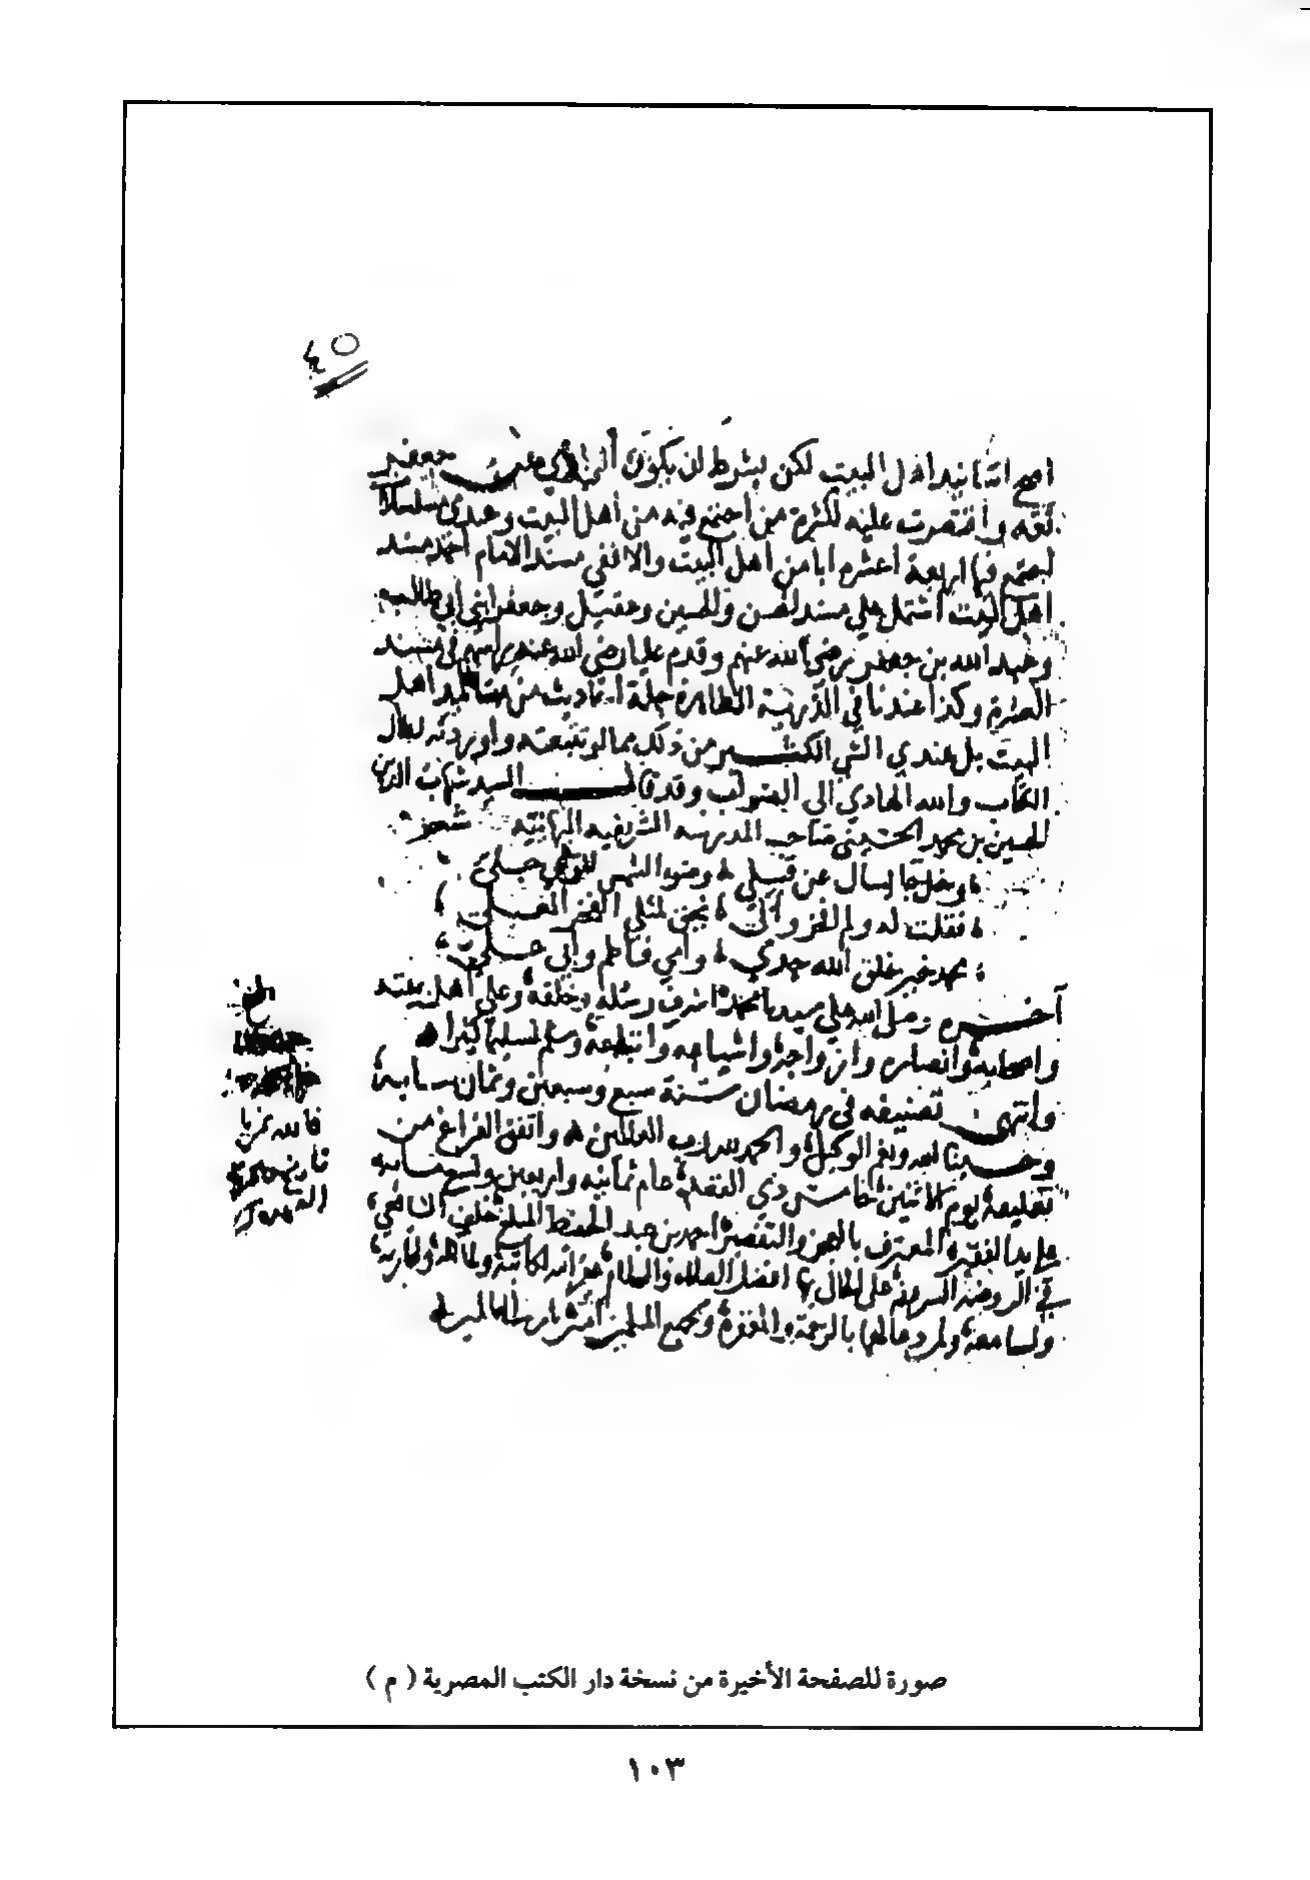 ٤٥
اصح اسانيد اهل البيت لكن بشرط ان يكون الراوي عن جعفر
ثقه واقتصرت عليه لكثرة من اجتمع فيه من أهل البيت وعندي مسلسلا
اجتمع فيها اربعة اعشر ابا من اهل البيت والا ففي مسند الامام احمد مسند
اهل البيت اشتمل على مسند الحسن والحسين وعقيل وجعفر ابني ابي طالب
وعبد الله بن جعفر رضي الله عنهم وقدم عليا رضي الله عنه في مسند
العشرة وكذا عندنا في الذرية الطاهرة جملة احاديث من اسانيد اهل
البيت بل عندي الشي الكثير من ذلك مما لو تتبعته واوردته لطال
الكتاب والله الهادي الى الصواب وقد قال السيد شهاب الدين
الحسين بن محمد الحسيني صاحب المدرسة الشريفيه البهائية شعر
يسال عن
فقلت له ولم افخر واني يحق لمثلي الفخر
محمد خير خلق الله جدي وامي فاطم وابي علي
آخره وصلى الله على سيدنا محمد اشرف رسله وخلقه وعلى أهل بيته
واصحابه وانصاره وازواجه واشياعه واتباعه وسلم تسليما كثيرا
وانتهى تصنيفه في رمضان سنة سبع وسبعين وثمان مايه
وحسبنا الله ونعم الوكيل والحمد لله رب العالمين واتفق الفراغ من
تعليقه يوم الاثنين خامس ذي القعدة عام ثمانيه واربعين وتسع مايه
على يد الفقير المعترف بالعجز والتقصير احمد بن عبد الحفيظ
في الروضة الشريفة على الحال بها افضل الصلاه والسلام غفر الله لكاتبه ولمالكه ولقاريه
ولسامعه ولمن دعا لهم بالرحمة والمغفرة وجميع المسلمين امين يا رب العالمين
صورة للصفحة الأخيرة من نسخة دار الكتب المصرية ( م )
١٠٣